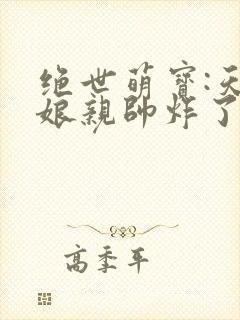 绝世萌寳:天
娘親帥炸了
高季平